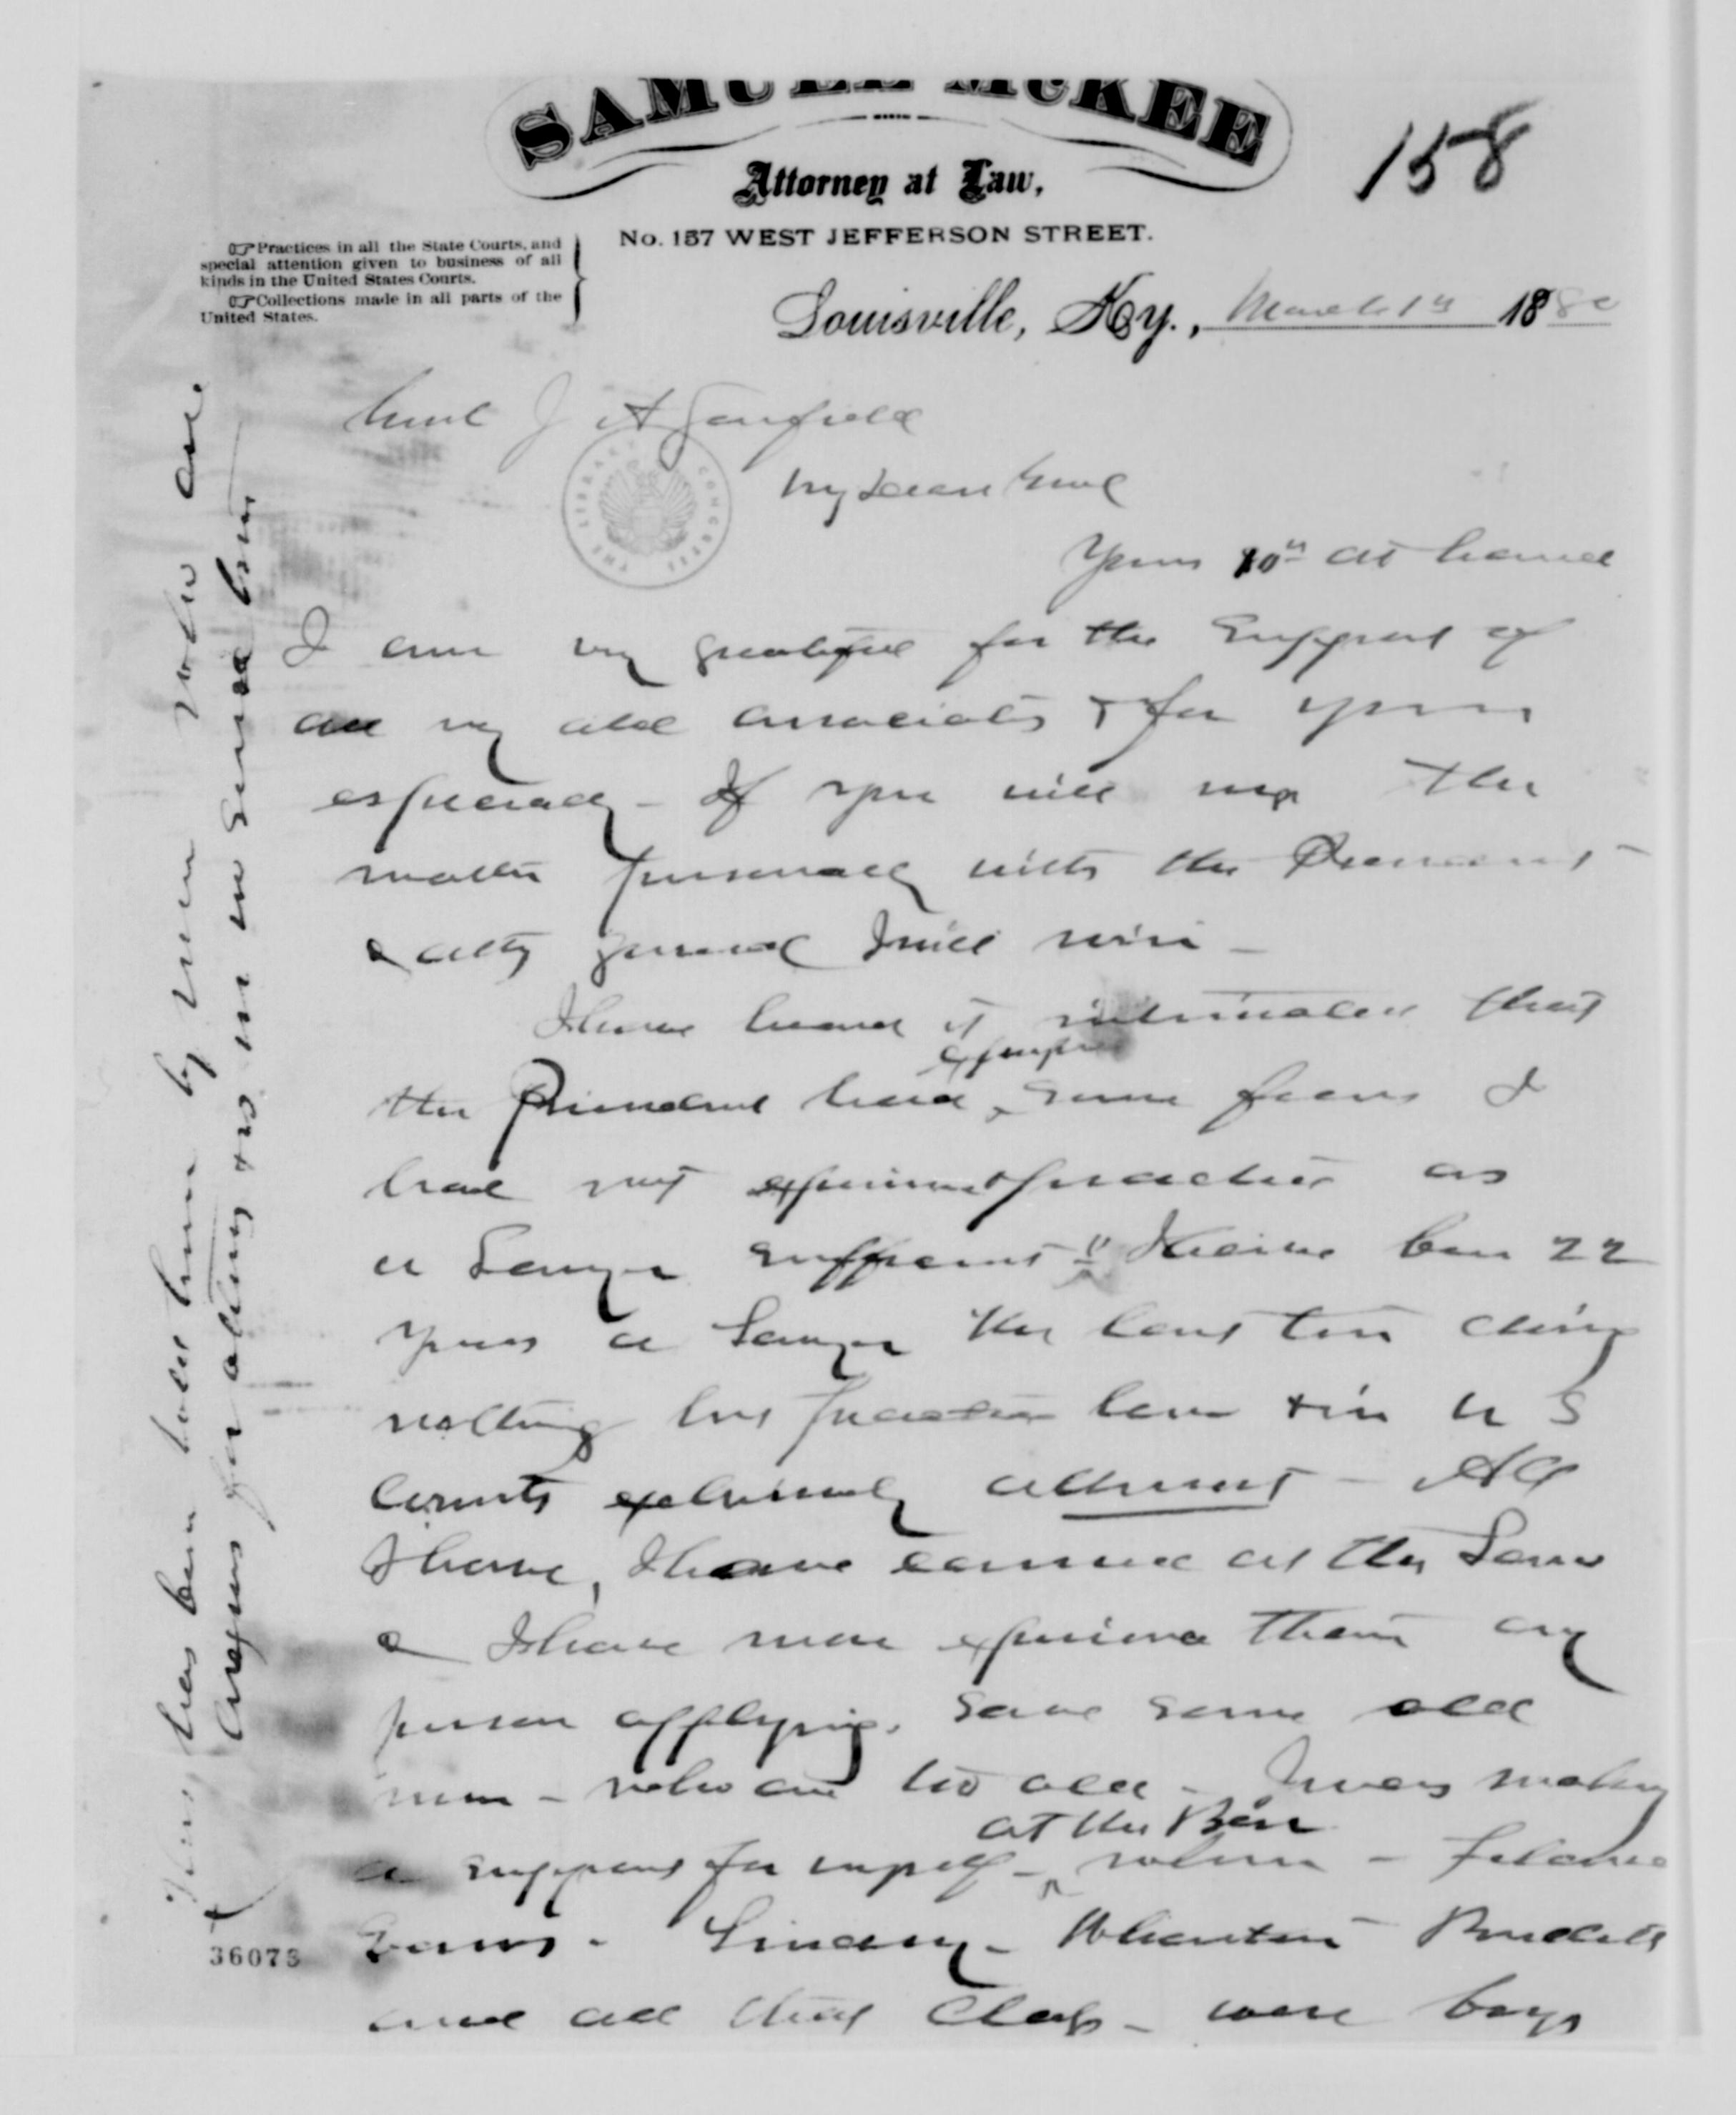 SAMUEL McKEE
158
Attorney at Law,
No. 157 WEST JEFFERSON STREET.
☞Practices in all the State Courts, and
special attention given to business of all
kinds in the United States Courts.
☞Collections made in all parts of the
United States.
Louisville, Ky., March 13 1880
Genl J A Garfield
THE LIBRARY CONGRESS
My dear Genl
Yours 10th at hand
I am very grateful for the support of
all my old associates & for yours
especially - If you will the
matter personally with the President
& atty general I will win -
I have heard it intimated that
expressed
the President had some fears I
had not experience & practice as
a Lawyer sufficient " I have been 22
years a Lawyer the last ten doing
nothing but practice law & in U S
Courts exclusively almost - All
I have, I have earned at the Law
& I have more experience than any
person applying, save some old
men - who are too old - I was making
at the Bar
a support for myself - when -
Lindsey - Wharton
and all that Class - were boys
This has been told him by men who are
anxious for ability & us in service
36073